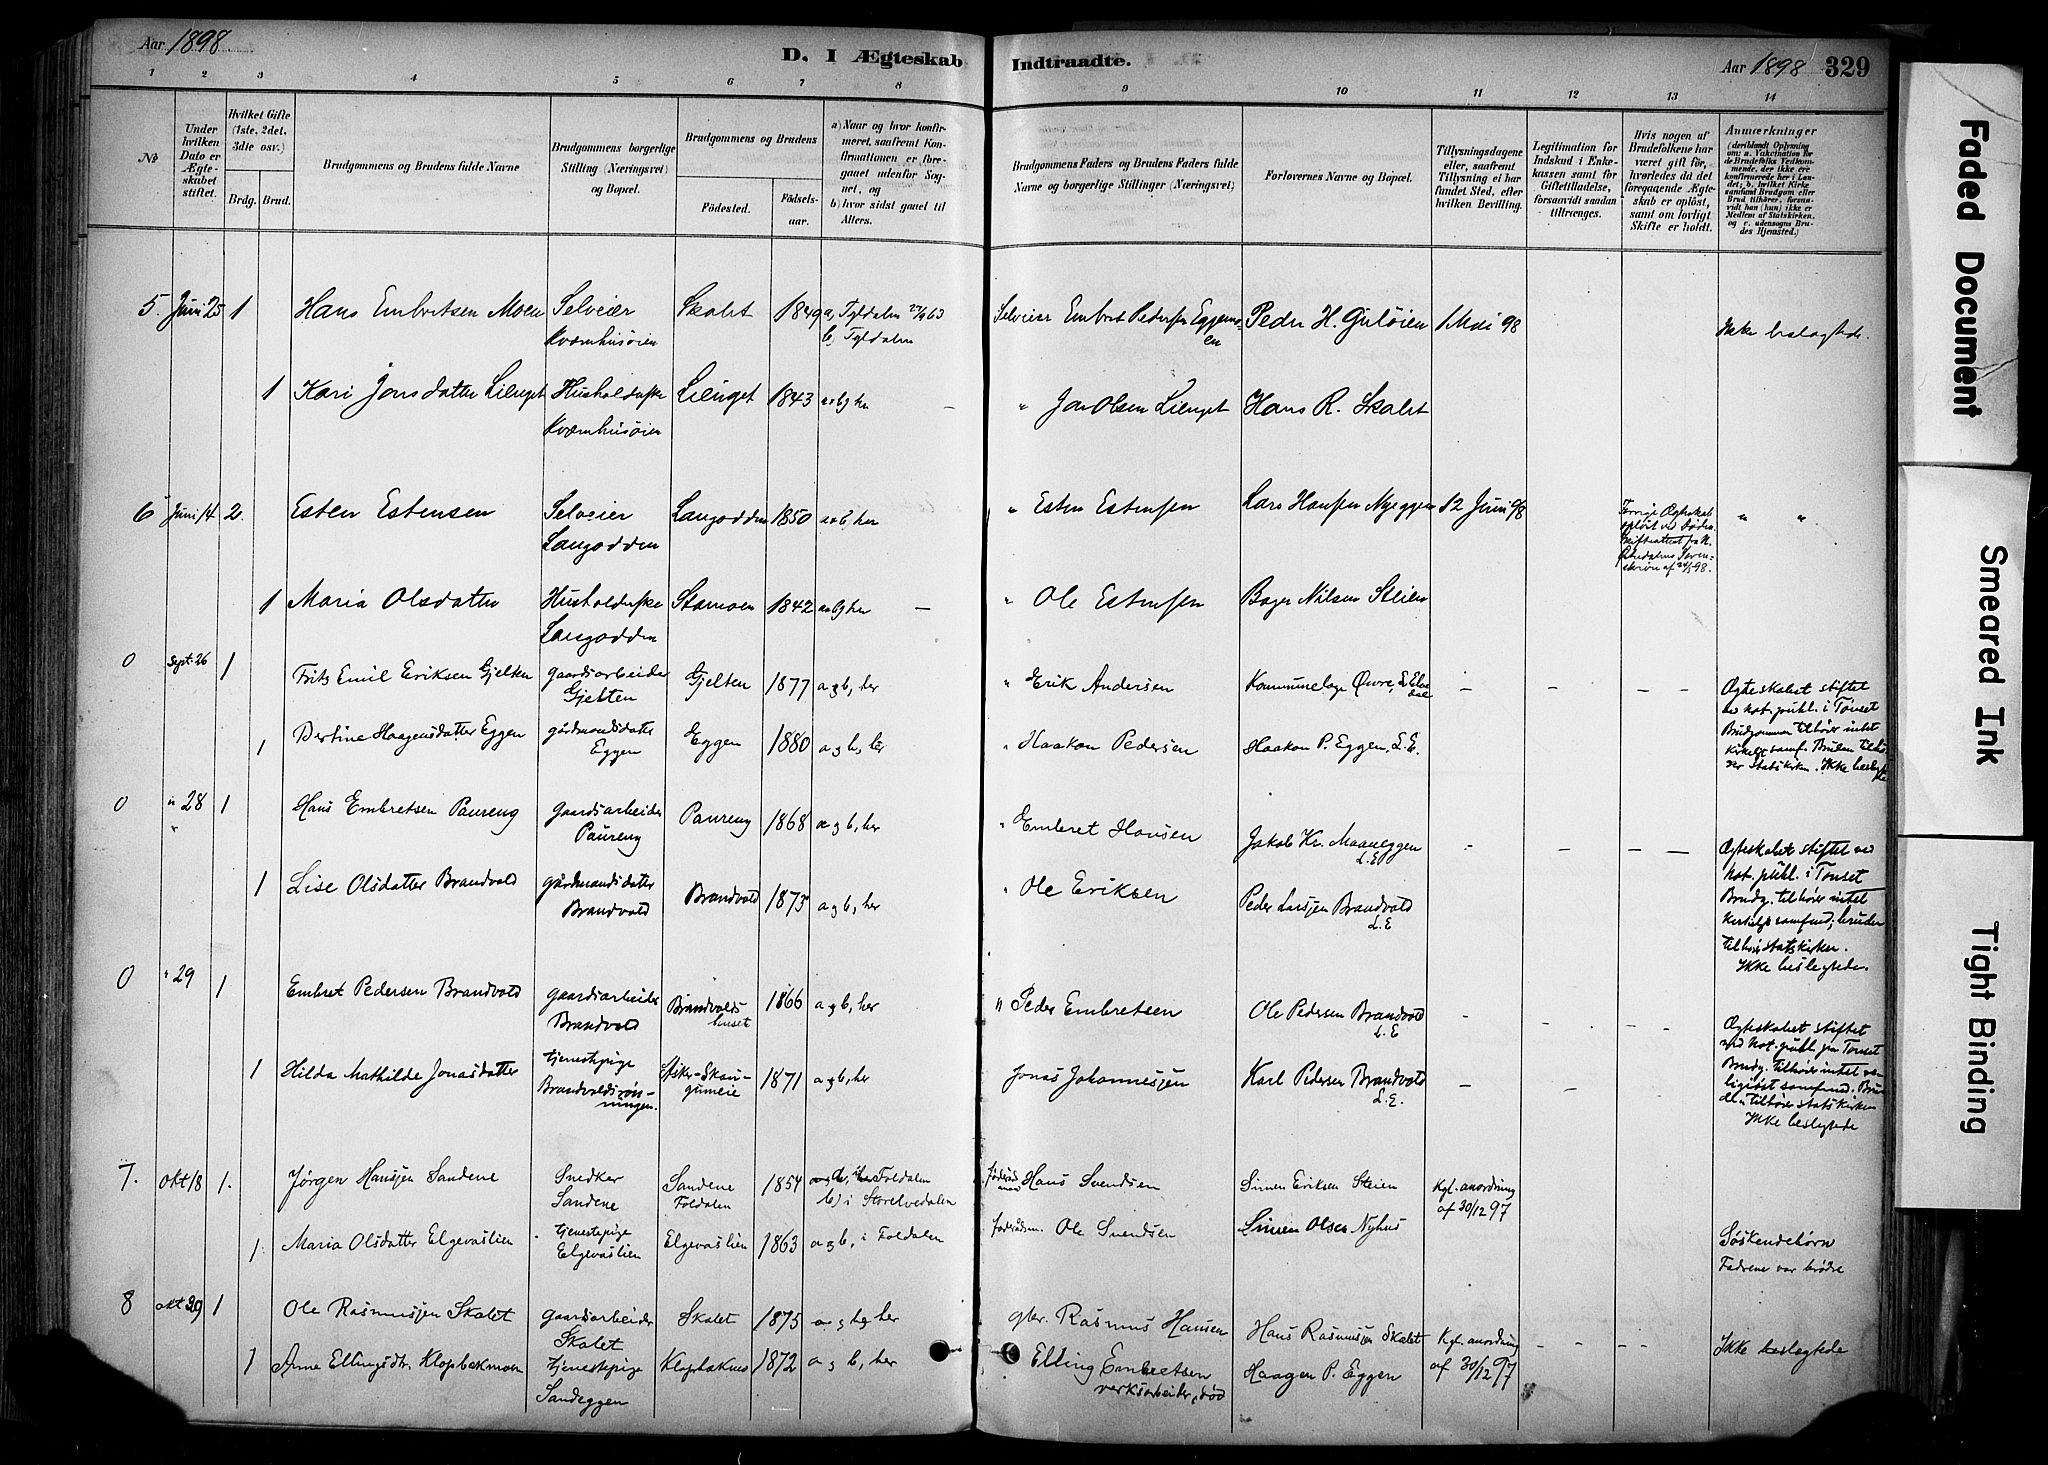 Aar 1898
D. I Ægteskab
Indtraadte.
Aar 1898 329
1 2 3 4 5 6 7 8 9 10 11 12 13 14
No
Under hvilken Dato er Ægteskabet stiftet.
Hvilket Gifte (1ste, 2det, 3die osv.)
Brdg. Brud.
Brudgommens og Brudens fulde Navne
Brudgommens borgerlige Stilling (Næringsvei) og Bopæl.
Brudgommens og Brudens
Födested.
Födsels-aar.
a) Naar og hvor konfirmeret, saafremt Konfirmationen er foregaaet udenfor Sognet, og
b) hvor sidst gaaet til Alters.
Brudgommens Faders og Brudens Faders fulde Navne og borgerlige Stillinger (Næringsvei)
Forlovernes Navne og Bopæl.
Tillysningsdagene eller, saafremt Tillysning ei har fundet Sted, efter hvilken Bevilling.
Legitimation for Indskud i Enkekassen samt for Giftetilladelse, forsaavidt saadan tiltrænges.
Hvis nogen af Brudefolkene har været gift för, hvorledes da det foregaaende Ægteskab er oplöst, samt om lovligt Skifte er holdt.
Anmærkninger
(deriblandt Oplysning om: a. Vakcination for de Brudefolks Vedkommende, der ikke ere konfirmerede her i Landet; b. hvilket Kirkesamfund Brudgom eller Brud tilhörer, forsaavidt han (hun) ikke er Medlem af Statskirken, og c. udensogns Brudes Hjemsted.)
5. Juni 25 1 Hans Embretsen Moen Selveier Skalet 1849 a, Tyldalen 27/9 63 Selveier Embret Pedersen Eggemoen Peder H. Guløien 1 Mai 98 Ikke beslægtede.
Kværnhusøien b, Tyldalen
1 Kari Jonsdatter Lienget Husholderske Lienget 1843 a og b, her " Jon Olsen Lienget Hans R. Skalet
Kværnhusøien
6 Juni 14 2. Esten Estensen Selveier Langodden 1850 a og b, her " Esten Estensen Lars Hansen Nyeggen 12 Juni 98 Forrige Ægteskab opløst ved Døden. " "
Langodden
1 Maria Olsdatter Husholderske Stamoen 1842 a og b, her — " Ole Estensen Bager Nilsen Steien
Langodden
0 Sept. 26 1 Frits Emil Eriksen Gjelten gaardsarbeider Gjelten 1877 a og b, her " Erik Andersen Kommunelæge Øvre, L. Elvedal — — — — Ægteskabet stiftet
Gjelten av not. publ. i Tønset
1 Bertine Haagensdatter Eggen gårdmandsdatter Eggen 1880 a og b, her " Haakon Pedersen Haakon P. Eggen, L.E. Brudgommen tilhører intet
Eggen kirkeligt samf. Bruden tilhører statskirken. Ikke beslægtede
0 " 28 1 Hans Embretsen Paureng gaardsarbeider Paureng 1868 a og b, her " Embret Hansen Jakob Kr. Maaneggen L.E — — — — Ægteskabet stiftet ved
Paureng not. publ. i Tønset
1 Lise Olsdatter Brandvold gårdmandsdatter Brandvold 1873 a og b, her " Ole Eriksen Peder Larsen Brandvold L.E Brudg. tilhører intet
Brandvold kirkeligt samfund; bruden
tilhører statskirken.
Ikke beslegtede.
0 " 29 1 Embret Pedersen Brandvold gaardsarbeider Brandvoldshuset 1866 a og b, her " Peder Embretsen Ole Pedersen Brandvold L.E — — — — Ægteskabet stiftet
Brandvold ved not. publ. fra Tønset
1 Hilda Mathilde Jonasdatter tjenestepige Asker-Skaugumeie 1871 a og b, her Jonas Johannesen Karl Pedersen Brandvold L.E. — — Brudg. tilhører intet religiøst samfund. Bruden tilhører statskirken
Brandvoldsrønningen. Ikke beslegtede
7. Okt 18 1. Jørgen Hansen Sandene Snedker Sandene 1854 Foldalen føderådsmand Hans Svendsen Simen Eriksen Steien Kgl. anordning
Sandene Foldalen b) i Storelvedalen af 30/12 97
1. Maria Olsdatter Elgevaslien tjenestepige Elgevaslien 1863 a og b, i Foldalen føderådsm. Ole Svendsen Simen Olsen Nyhus Søskendebørn
Elgevaslien Fædrene var brødre
8 okt 29 1 Ole Rasmussen Skalet gaardsarbeider Skalet 1875 a og b, her gbr. Rasmus Hansen Hans Rasmussen Skalet Kgl. anordning — — — Ikke beslegtede
Skalet af 30/12 97
1 Anne Ellingsdtr. Klopbakmoen tjenestepige Klopbakmo 1872 a og b, her Elling Embretsen Haagen P. Eggen
Sandeggen verksarbeider, død
Faded Document
Smeared Ink
Tight Binding